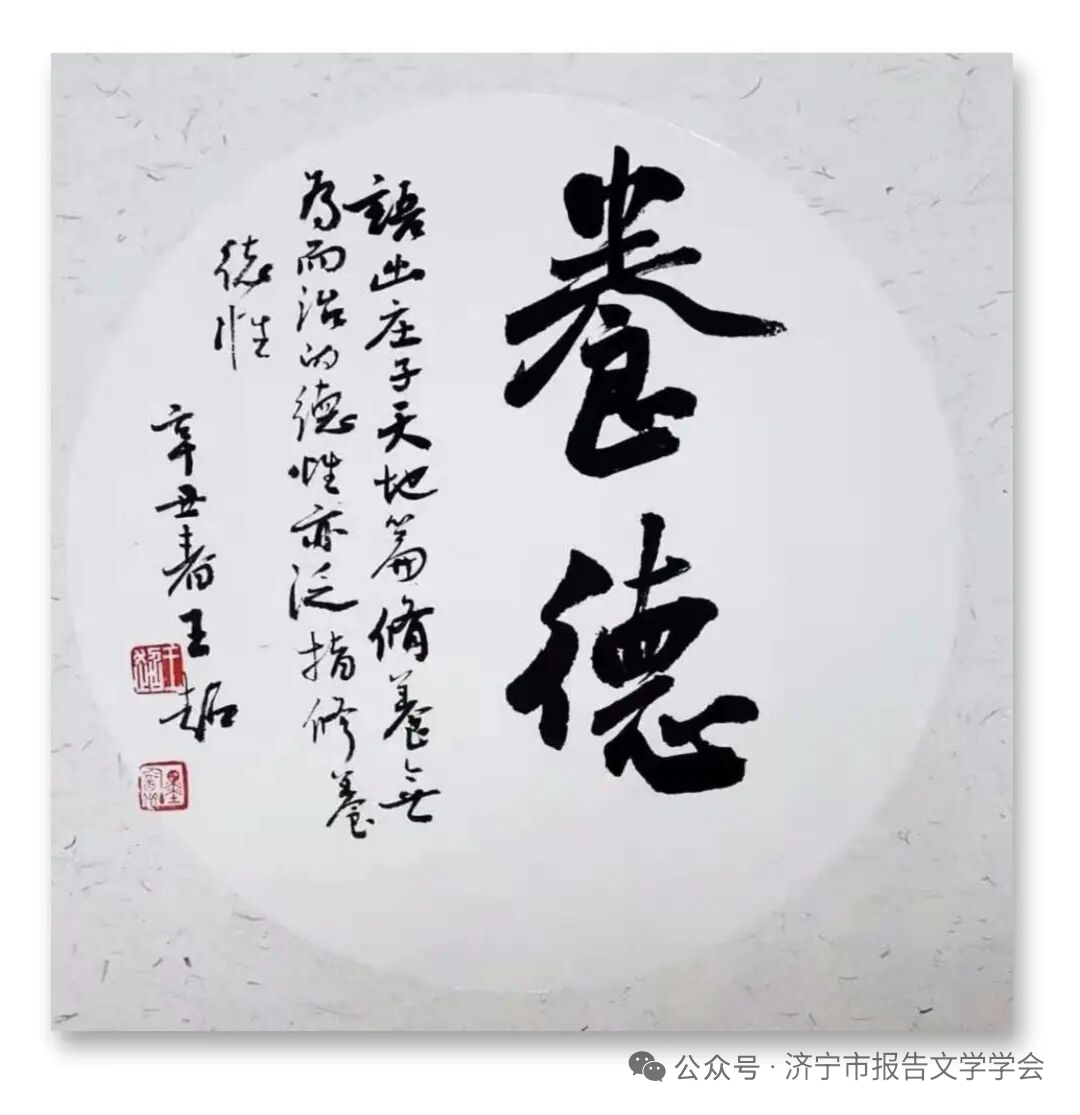 養德
語出庄子天地篇脩養無
為而治的德性亦泛指修養
德性
辛丑春王超
公众号 · 济宁市报告文学学会